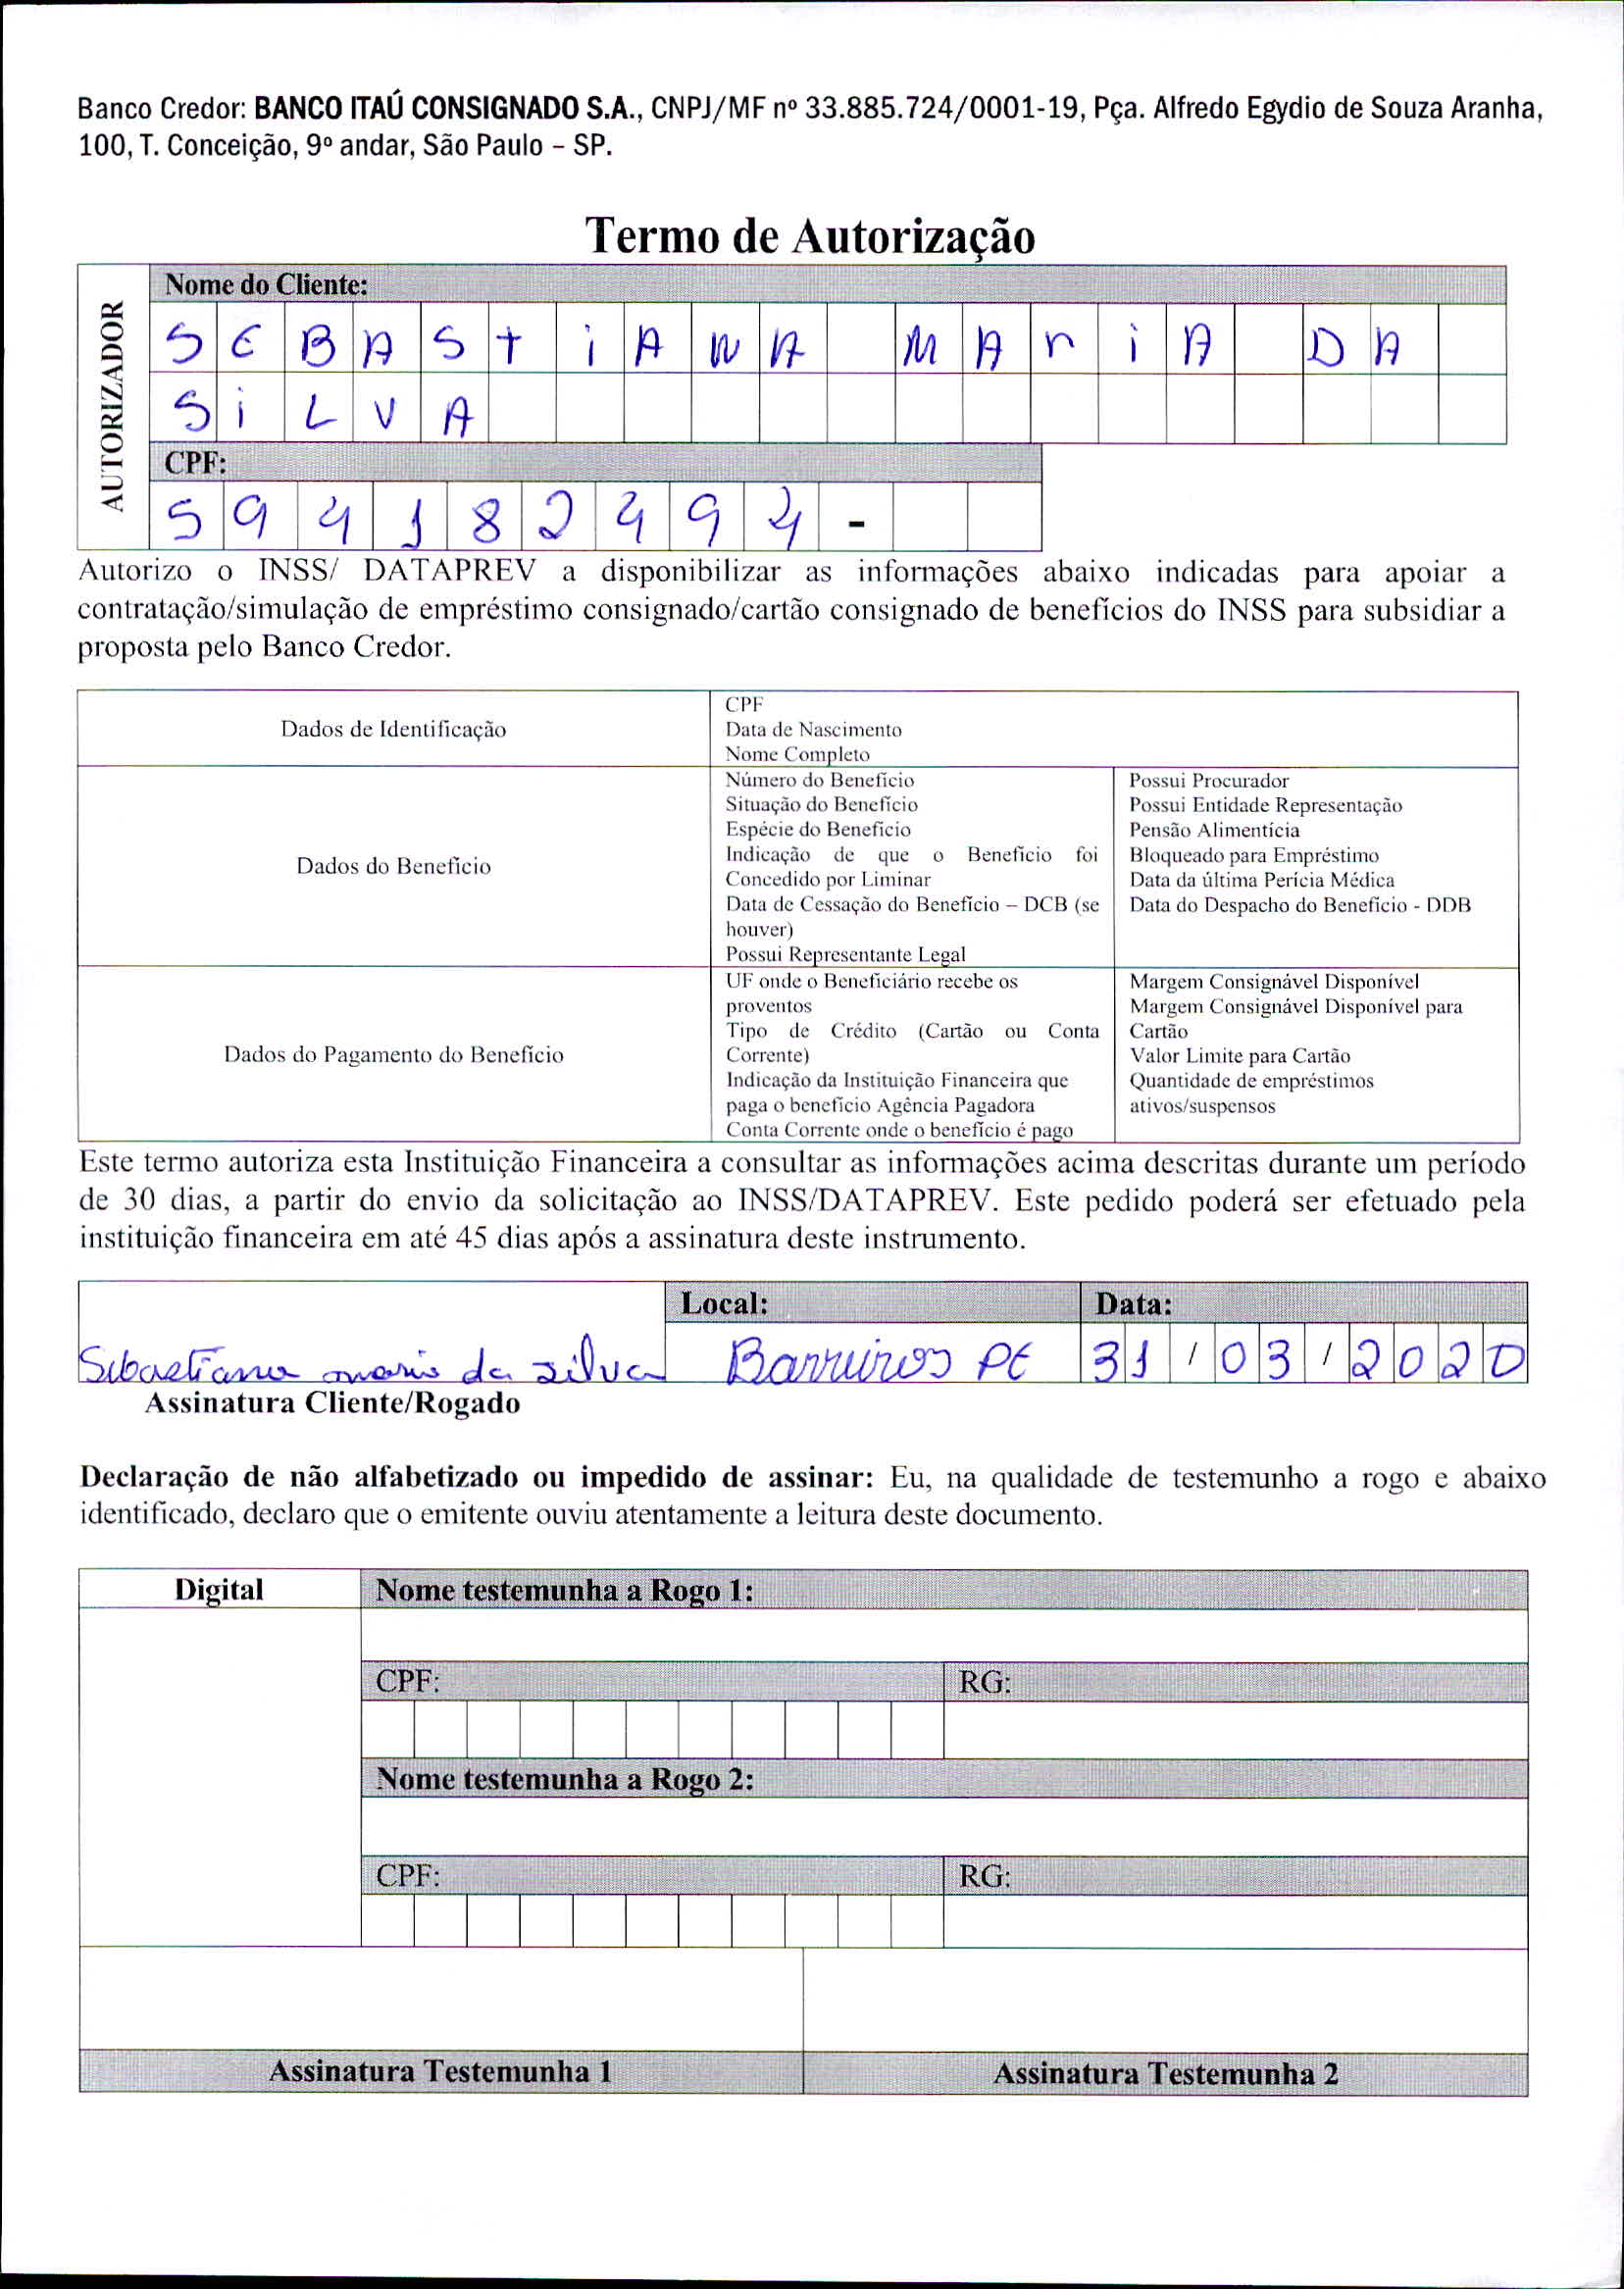 Banco Credor: BANCO ITAÚ CONSIGNADO S.A., CNPJ/MF nº 33.885.724/0001-19, Pça. Alfredo Egydio de Souza Aranha,
100, T. Conceição, 9º andar, São Paulo – SP.
Termo de Autorização
AUTORIZADOR
Nome do Cliente:
SEBAStiANA MAriA DA
SiLVA
CPF:
594182494-
Autorizo o INSS/ DATAPREV a disponibilizar as informações abaixo indicadas para apoiar a
contratação/simulação de empréstimo consignado/cartão consignado de benefícios do INSS para subsidiar a
proposta pelo Banco Credor.
Dados de Identificação
CPF
Data de Nascimento
Nome Completo
Dados do Benefício
Número do Benefício
Situação do Benefício
Espécie do Benefício
Indicação de que o Benefício foi
Concedido por Liminar
Data de Cessação do Benefício – DCB (se
houver)
Possui Representante Legal
Possui Procurador
Possui Entidade Representação
Pensão Alimentícia
Bloqueado para Empréstimo
Data da última Perícia Médica
Data do Despacho do Benefício - DDB
Dados do Pagamento do Benefício
UF onde o Beneficiário recebe os
proventos
Tipo de Crédito (Cartão ou Conta
Corrente)
Indicação da Instituição Financeira que
paga o benefício Agência Pagadora
Conta Corrente onde o benefício é pago
Margem Consignável Disponível
Margem Consignável Disponível para
Cartão
Valor Limite para Cartão
Quantidade de empréstimos
ativos/suspensos
Este termo autoriza esta Instituição Financeira a consultar as informações acima descritas durante um período
de 30 dias, a partir do envio da solicitação ao INSS/DATAPREV. Este pedido poderá ser efetuado pela
instituição financeira em até 45 dias após a assinatura deste instrumento.
Local: Data:
Sebastiana maria da silva Barreiros PE 31/03/2020
Assinatura Cliente/Rogado
Declaração de não alfabetizado ou impedido de assinar: Eu, na qualidade de testemunho a rogo e abaixo
identificado, declaro que o emitente ouviu atentamente a leitura deste documento.
Digital
Nome testemunha a Rogo 1:
CPF: RG:
Nome testemunha a Rogo 2:
CPF: RG:
Assinatura Testemunha 1 Assinatura Testemunha 2